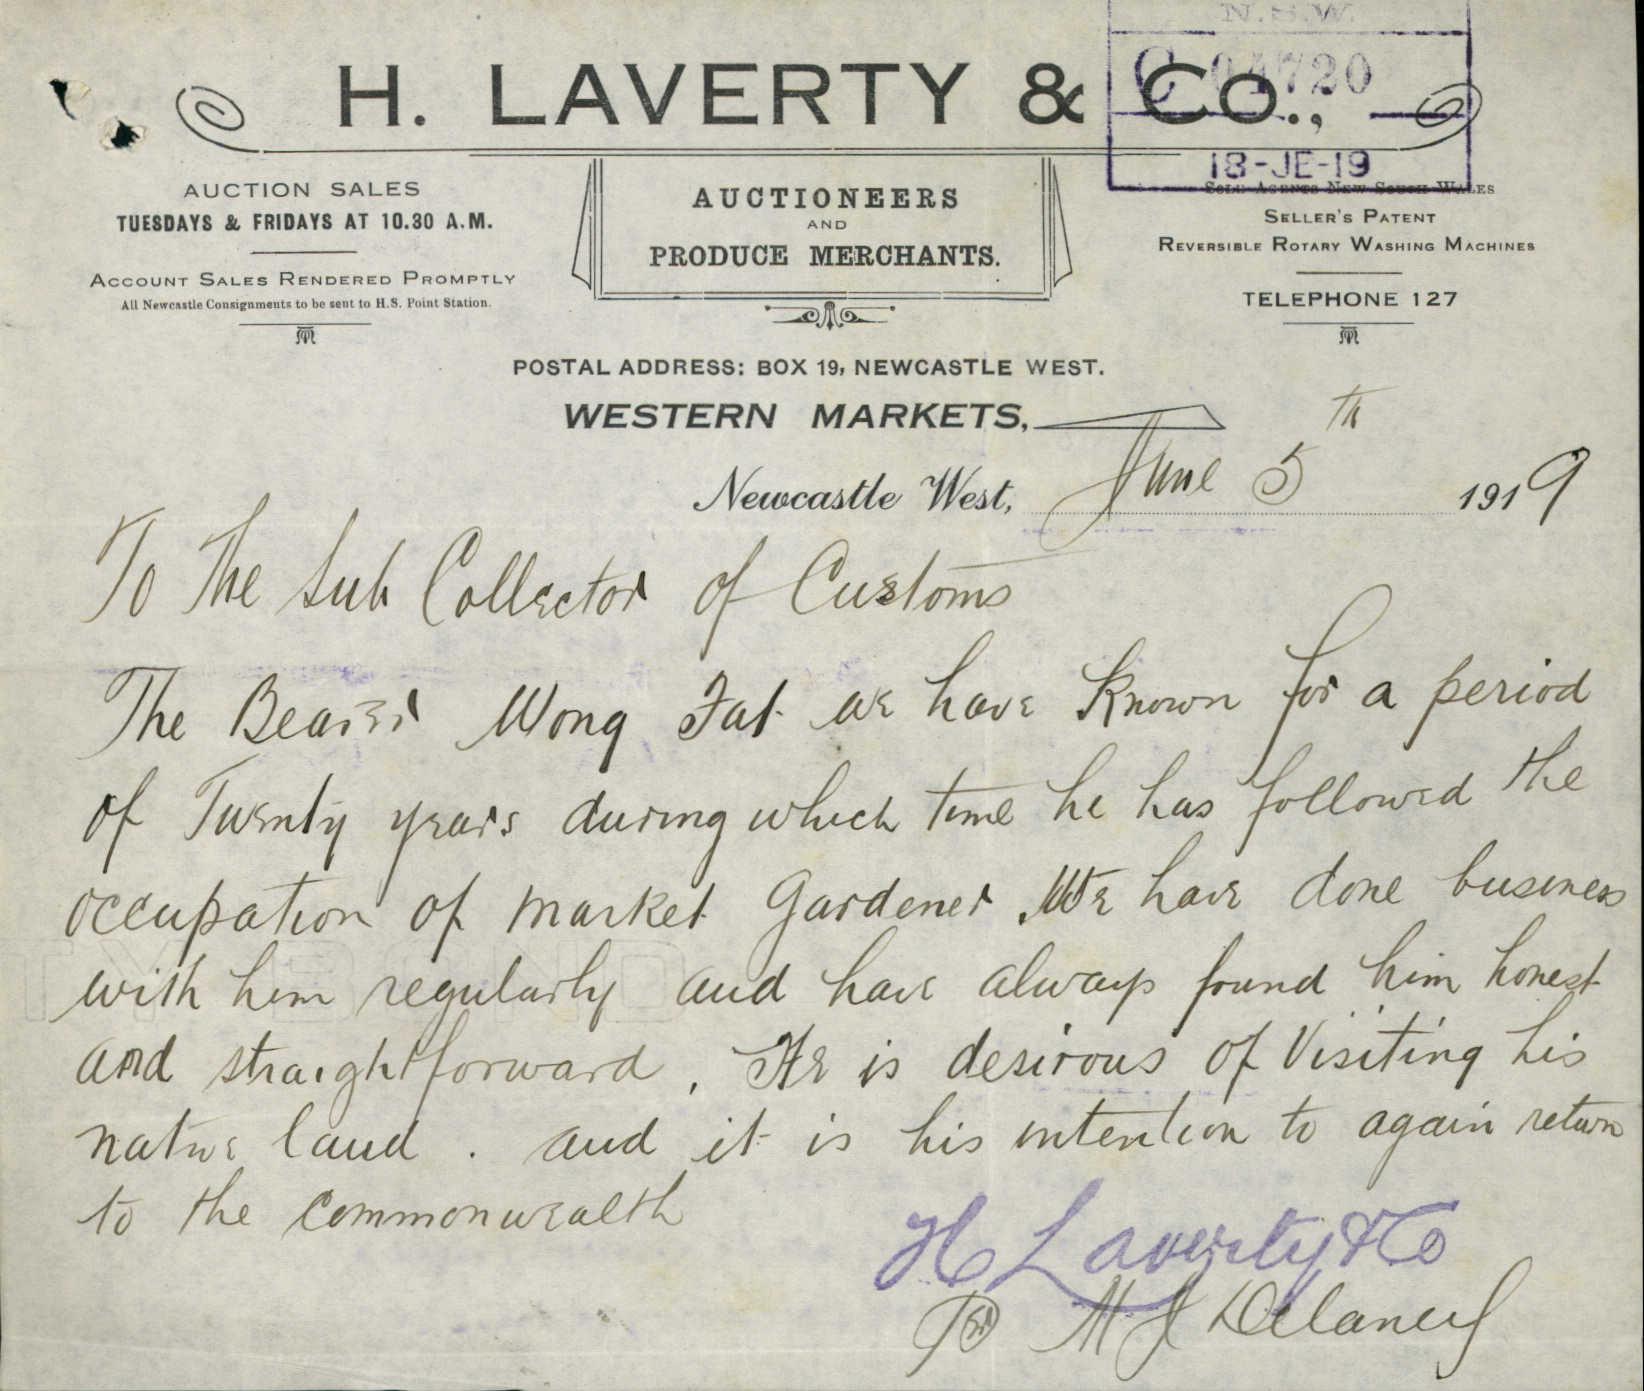 N.S.W.
C 04720
18-JE-19
H. LAVERTY & Co.,
AUCTION SALES
TUESDAYS & FRIDAYS AT 10.30 A.M.
ACCOUNT SALES RENDERED PROMPTLY
All Newcastle Consignments to be sent to H.S. Point Station.
AUCTIONEERS
AND
PRODUCE MERCHANTS.
SOLE AGENTS NEW SOUTH WALES
SELLER'S PATENT
REVERSIBLE ROTARY WASHING MACHINES
TELEPHONE 127
POSTAL ADDRESS: BOX 19, NEWCASTLE WEST.
WESTERN MARKETS,
Newcastle West, June 5th 1919
To The Sub Collector of Customs
The Bearer Wong Fat we have known for a period
of Twenty years during which time he has followed the
occupation of market Gardener. We have done business
with him regularly and have always found him honest
and straightforward. He is desirous of Visiting his
native land. and it is his intention to again return
to the commonwealth
H Laverty & Co
Per M J Delaney